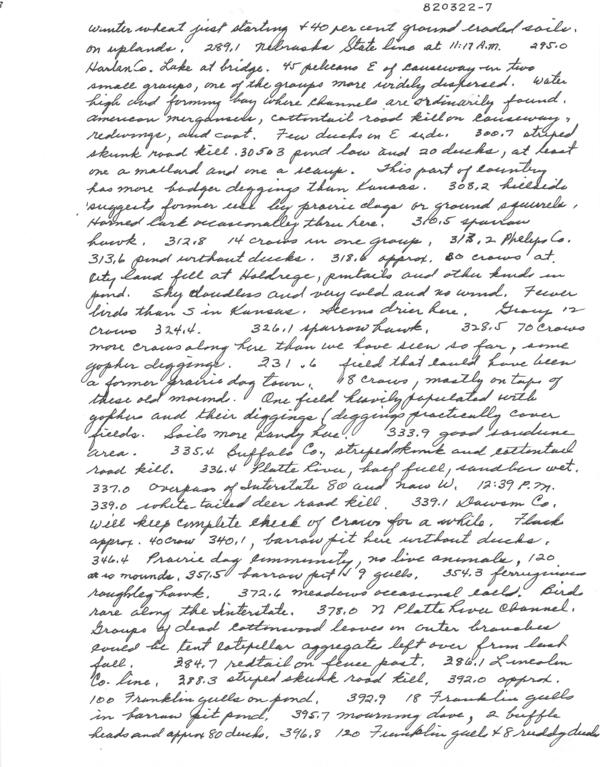 820322-7
winter wheat just starting + 40 per cent ground eroded soils.
on uplands. 289.1 Nebraska State line at 11:17 A.M. 295.0
Harlan Co. Lake at bridge. 45 pelicans E of causeway in two
small groups, one of the groups more widely dispersed. Water
high and forming bay where channels are ordinarily found.
american mergansers, cottontail road kill on causeway,
redwings, and coot. Few ducks on E side. 300.7 striped
skunk road kill. 305.3 pond low and 20 ducks, at least
one a mallard and one a scaup. This part of country
has more badger diggings than Kansas. 308.2 hillside
suggests former use by prairie dogs or ground squirrels.
Horned Lark occasionally thru here. 310.5 sparrow
hawk. 312.8 14 crows in one group. 313.2 Phelps Co.
313.6 pond without ducks. 318.6 approx. 80 crows at
city land fill at Holdrege, pintails and other kinds in
pond. Sky cloudless and very cold and no wind. Fewer
birds than S in Kansas. Seems drier here. Group 12
crows 324.4. 326.1 sparrow hawk. 328.5 70 crows
more crows along here than we have seen so far, some
gopher diggings. 231.6 field that could have been
a former prairie dog town. 18 crows, mostly on tops of
these old mound. One field heavily populated with
gophers and their diggings (diggings practically cover
fields. Soils more sandy here. 333.9 good sandune
area. 335.4 Buffalo Co., striped skunk and cottontail
road kill. 336.4 Platte River, half full, sandbars wet.
337.0 overpass of Interstate 80 and now W. 12:39 P.M.
339.0 white tailed deer road kill. 339.1 Dawson Co.
will keep complete check of crows for a while. Flock
approx. 40 crow 340.1, barrow pit here without ducks.
346.4 Prairie dog community, no live animals, 120
mounds. 351.5 barrow pit 9 gulls. 354.3 ferruginous
roughleg hawk. 372.6 meadows occasional Birds
rare along the Interstate. 378.0 N Platte River Channel.
Groups of dead cottonwood leaves on outer branches
could be tent catepillar aggregate left over from last
fall. 384.7 redtail on fence post. 386.1 Lincoln
Co. line. 388.3 striped skunk road kill. 392.0 approx.
100 Franklin gulls on pond. 392.9 18 Franklin gulls
in barrow pit pond. 395.7 mourning dove, 2 buffle
heads and approx 80 ducks. 396.8 120 Franklin gulls + 8 ruddy ducks